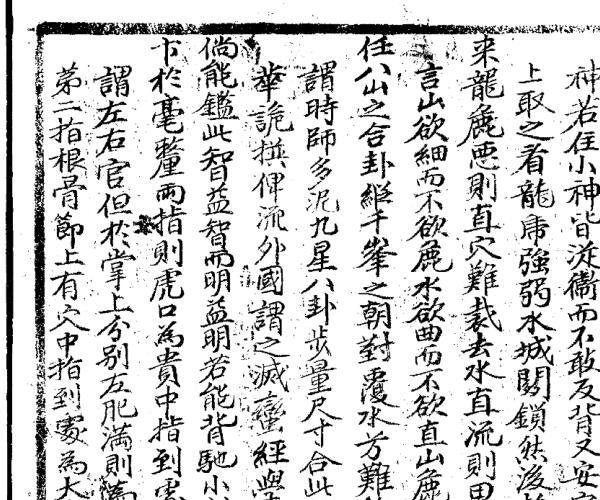 神若住小神皆從衛而不敢反背又安
上取之看龍席強弱水城關鎖然後
来龍麁悪則直穴難裁去水直流則田
言山欲細而不欲麁水欲曲而不欲直山麁
任八山之合卦縂千峯之朝對覆水方難
謂時師多泥九星八卦步量尺寸合此
華詭撰俾流外國謂之滅蠻經與
倘能鑑此智益智而明益明若能背馳小
下於毫釐兩指則虎口為貴中指到
謂左右官但於掌上分别左肥滿則為
第二指根骨節上有穴中指到䖏為大